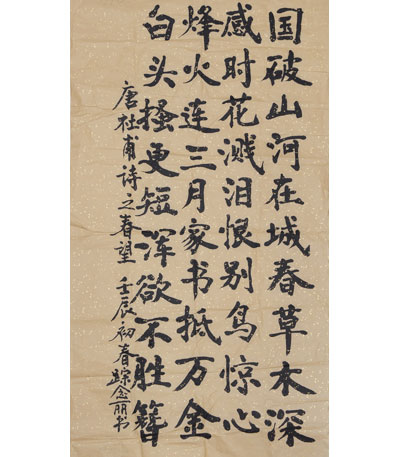 国破山河在城春草木深
感时花溅泪恨别鸟惊心
烽火连三月家书抵万金
白头搔更短浑欲不胜簪
唐杜甫诗之春望 壬辰初春踪念丽书